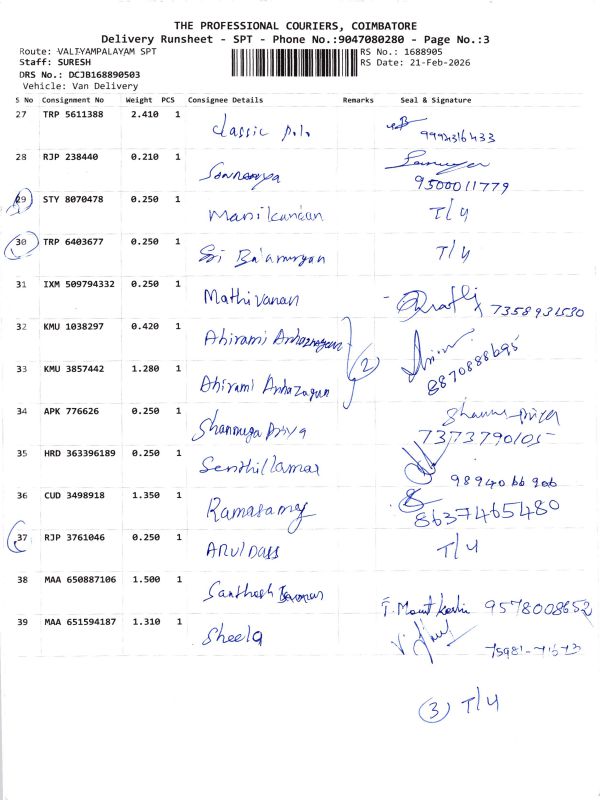 THE PROFESSIONAL COURIERS, COIMBATORE
Delivery Runsheet - SPT - Phone No.:9047080280 - Page No.:3
Route: VALIYAMPALAYAM SPT RS No.: 1688905
Staff: SURESH RS Date: 21-Feb-2026
DRS No.: DCJB168890503
Vehicle: Van Delivery
S No Consignment No Weight PCS Consignee Details Remarks Seal & Signature
27 TRP 5611388 2.410 1 classic polo
28 RJP 238440 0.210 1 9500011779
29 STY 8070478 0.250 1 Manikandan T/4
30 TRP 6403677 0.250 1 Sri T/4
31 IXM 509794332 0.250 1 Mathivanan 7358931530
32 KMU 1038297 0.420 1 Ahirami
(2)
33 KMU 3857442 1.280 1 Ahirami 8870888695
34 APK 776626 0.250 1 Shanmuga Priya 7373790105
35 HRD 363396189 0.250 1 98940 66 906
36 CUD 3498918 1.350 1 Ramasamy 8637465480
37 RJP 3761046 0.250 1 Aruldass T/4
38 MAA 650887106 1.500 1 Santhosh 9578008652
39 MAA 651594187 1.310 1 Sheela
(3) T/4